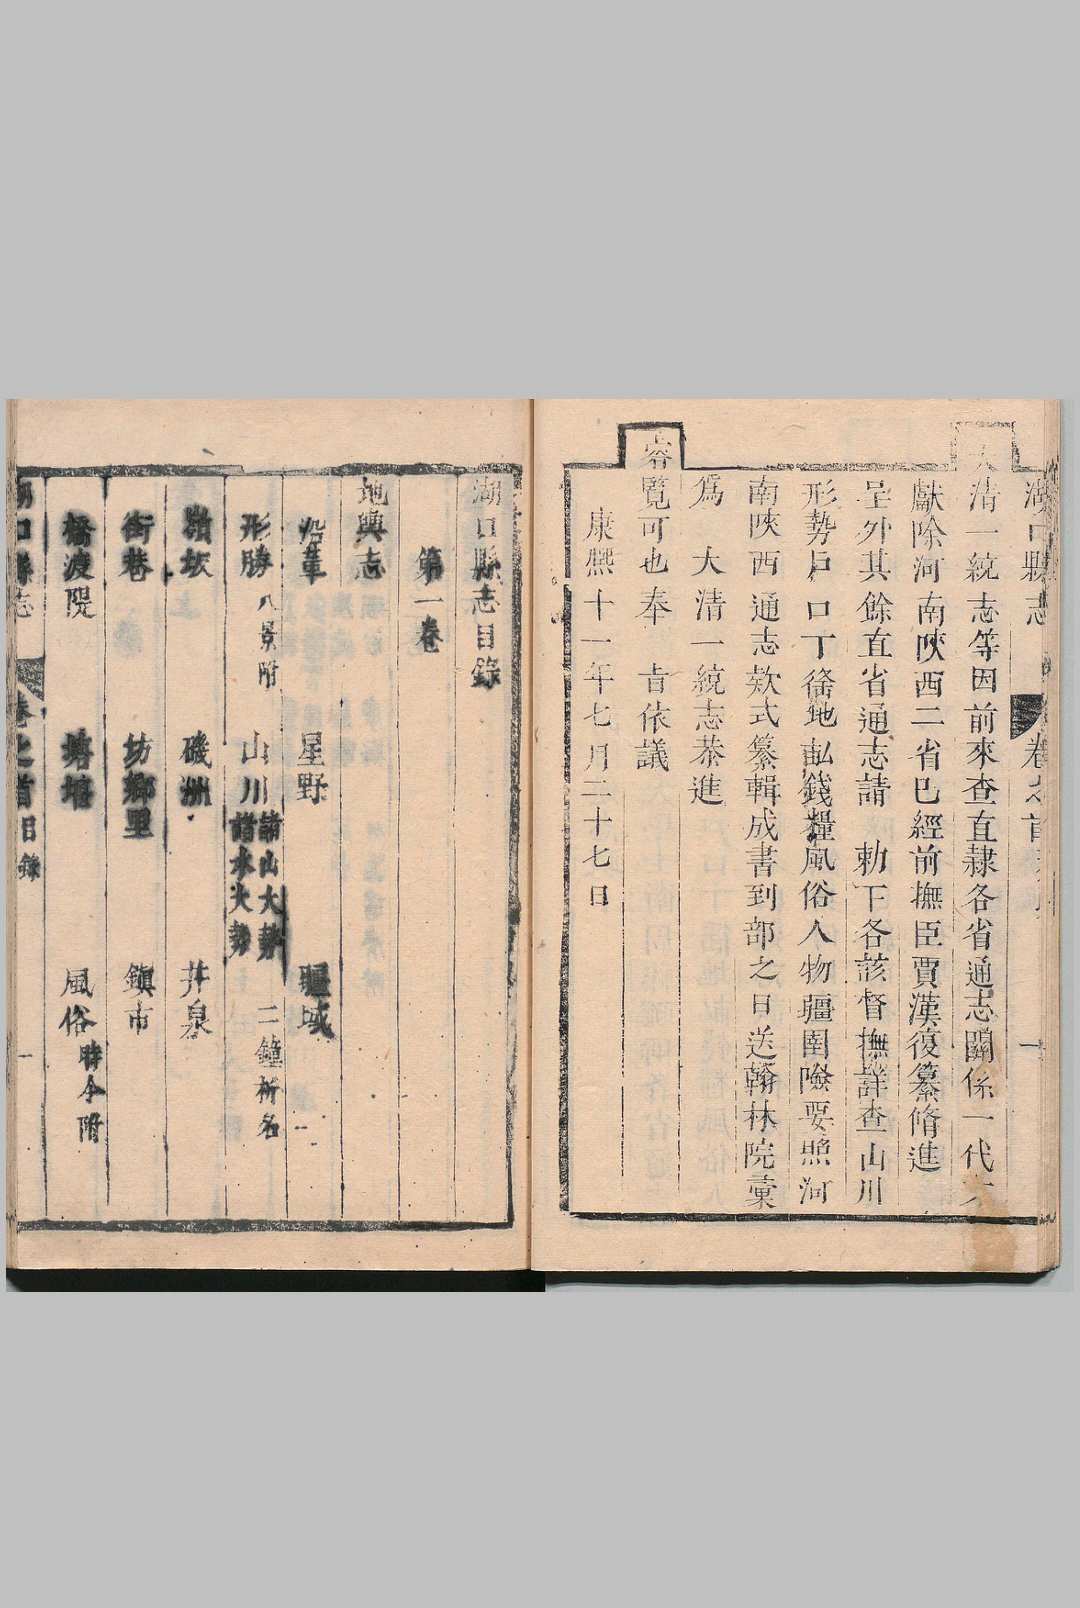 湖口縣志 卷之首 一
大清一統志等因前來查直隷各省通志關係一代文
獻除河南陜西二省已經前撫臣賈漢復纂脩進
呈外其餘直省通志請 勅下各該督撫詳查山川
形勢戶口丁徭地畝錢糧風俗人物疆圉險要照河
南陜西通志欵式纂輯成書到部之日送翰林院彙
爲 大清一統志恭進
睿覽可也奉 旨依議
康熙十一年七月二十七日
湖口縣志目錄
第一卷
地輿志
沿革 星野 疆域
形勝八景附 山川諸山大勢 諸水大勢 二鐘析名
嶺坂 磯洲 井泉
街巷 坊鄉里 鎮市
橋渡隄 塘堰 風俗時令附
湖口縣志 卷之首目錄 一